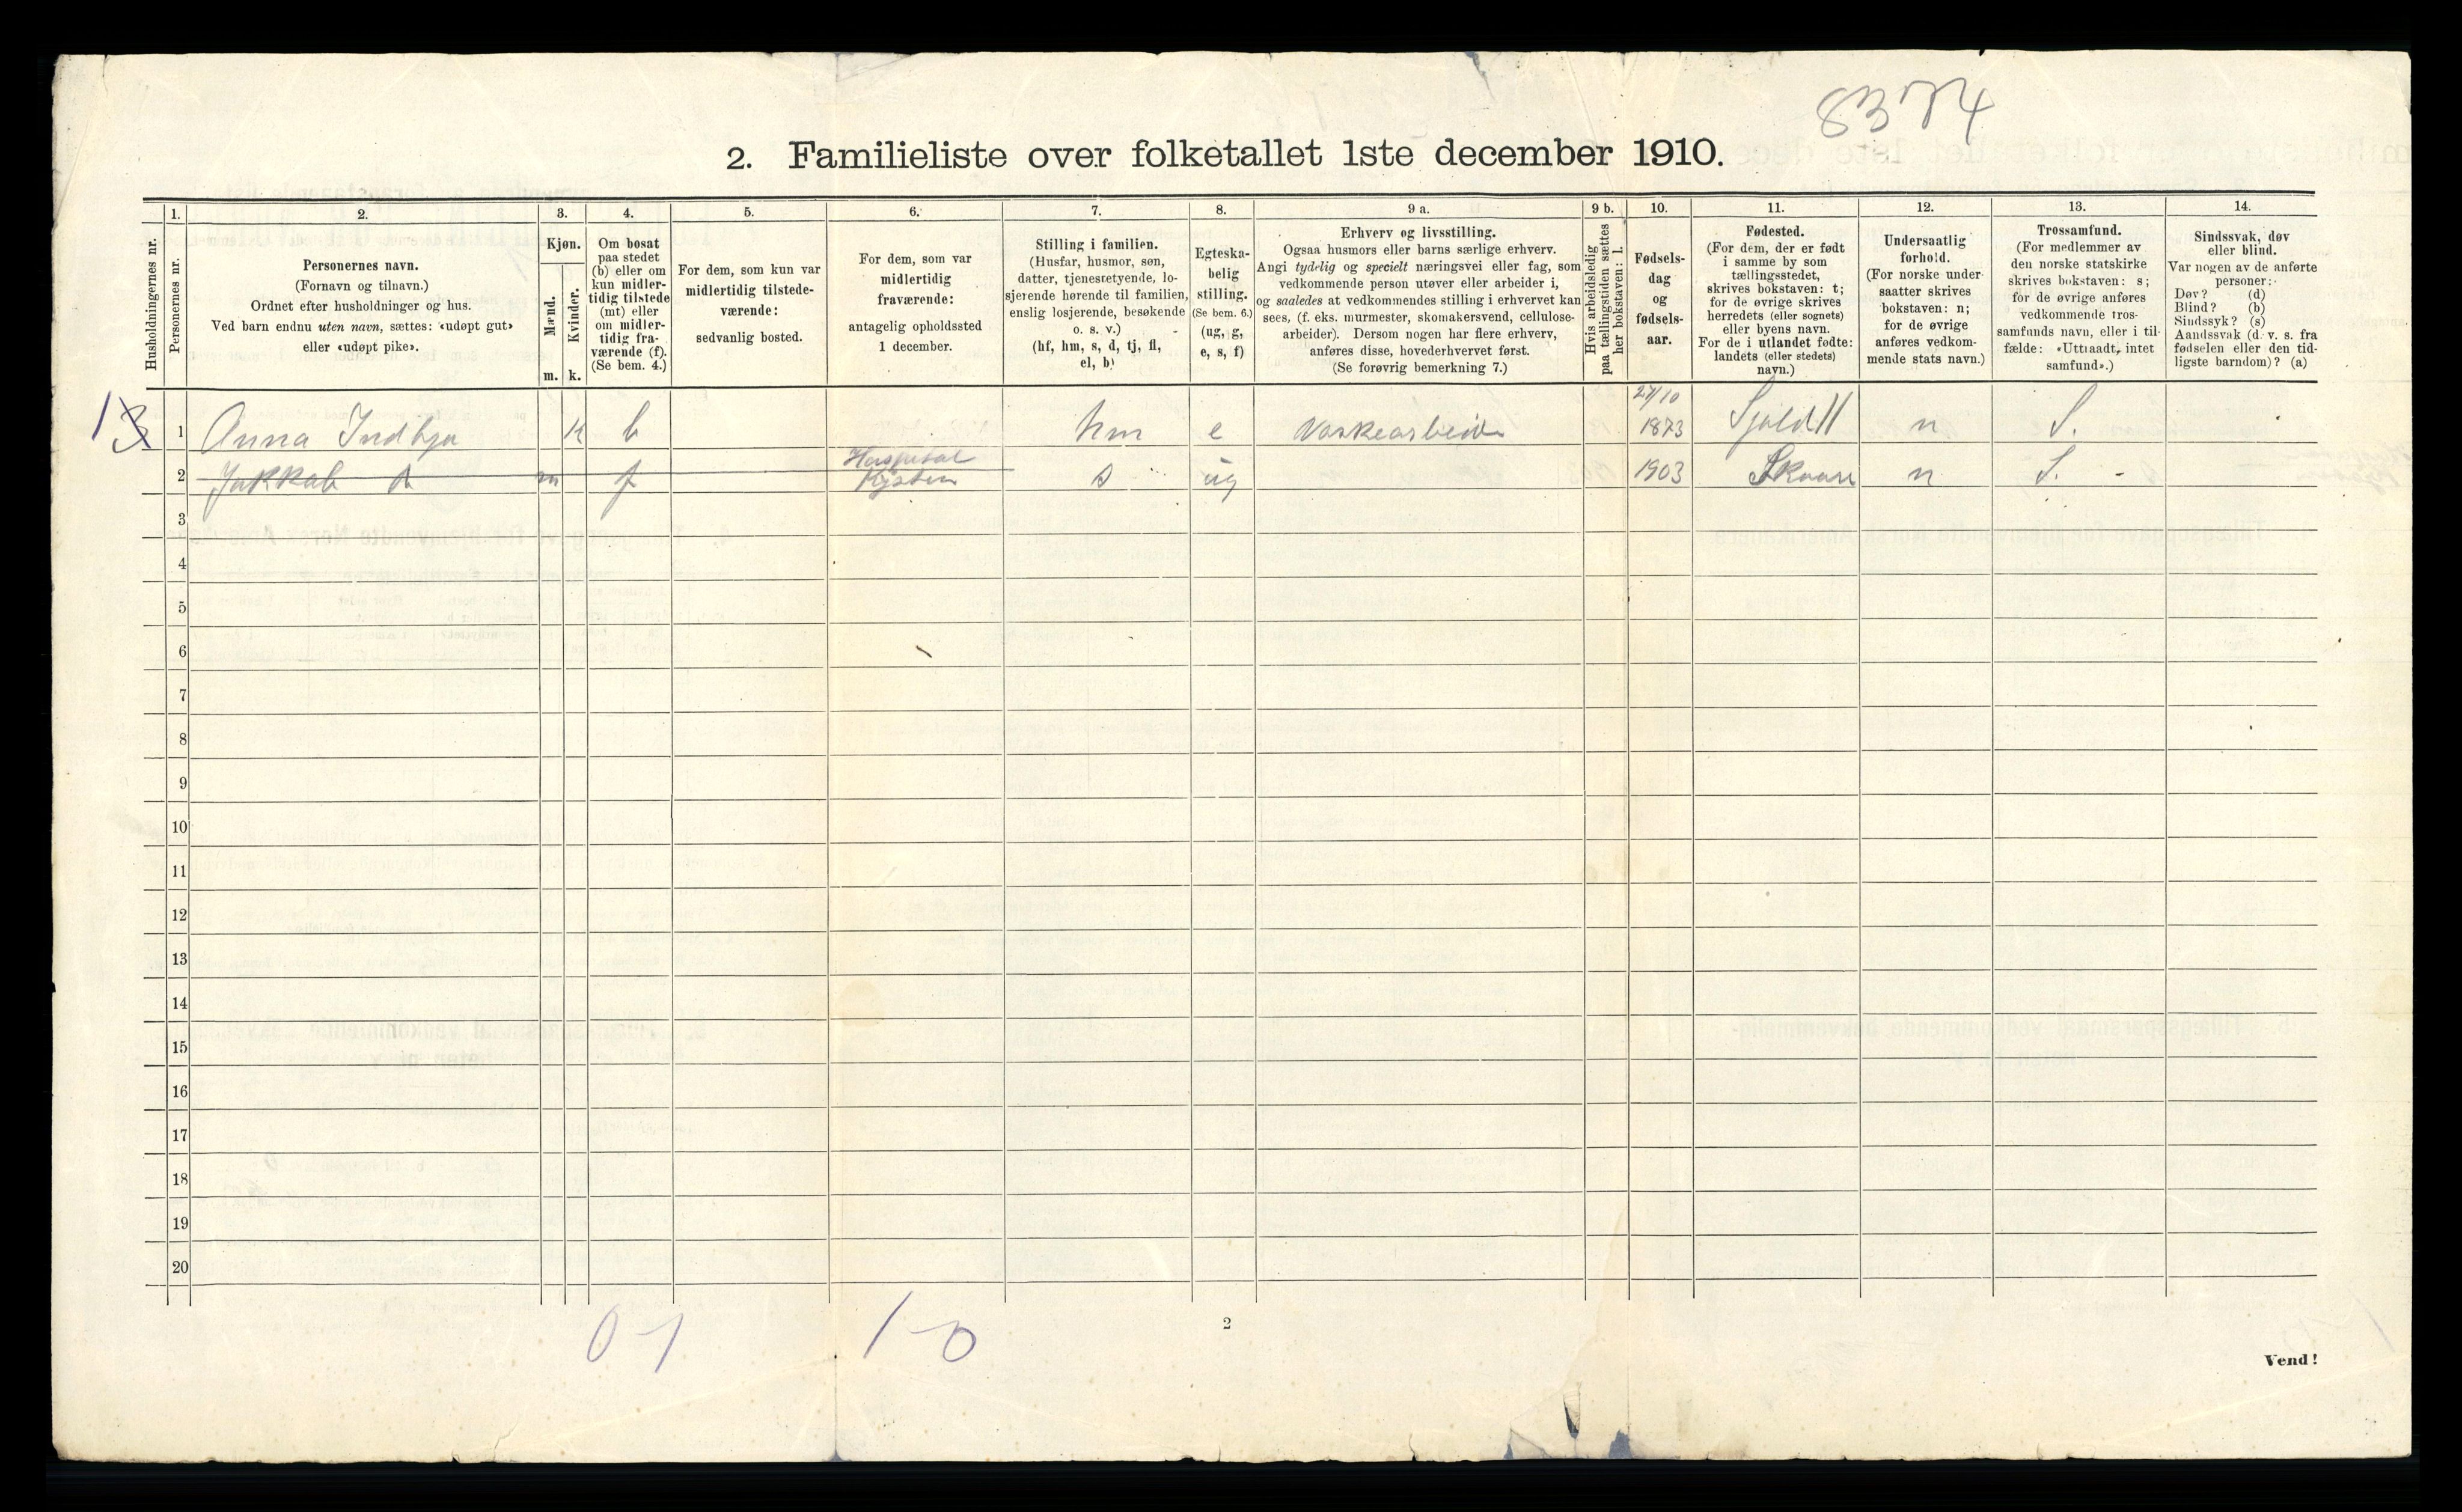 8374
2. Familieliste over folketallet 1ste december 1910.
1. 2. 3. 4. 5. 6. 7. 8. 9 a. 9 b. 10. 11. 12. 13. 14.
Husholdningernes nr.
Personernes nr.
Personernes navn.
(Fornavn og tilnavn.)
Ordnet efter husholdninger og hus.
Ved barn endnu uten navn, sættes: «udøpt gut»
eller «udøpt pike».
Kjøn.
Mænd.
Kvinder.
m. k.
Om bosat
paa stedet
(b) eller om
kun midler-
tidig tilstede
(mt) eller
om midler-
tidig fra-
værende (f).
(Se bem. 4.)
For dem, som kun var
midlertidig tilstede-
værende:
sedvanlig bosted.
For dem, som var
midlertidig
fraværende:
antagelig opholdssted
1 december.
Stilling i familien.
(Husfar, husmor, søn,
datter, tjenestetyende, lo-
sjerende hørende til familien,
enslig losjerende, besøkende
o. s. v.)
(hf, hm, s, d, tj, fl,
el, b)
Egteska-
belig
stilling.
(Se bem. 6.)
(ug, g,
e, s, f)
Erhverv og livsstilling.
Ogsaa husmors eller barns særlige erhverv.
Angi tydelig og specielt næringsvei eller fag, som
vedkommende person utøver eller arbeider i,
og saaledes at vedkommendes stilling i erhvervet kan
sees, (f. eks. murmester, skomakersvend, cellulose-
arbeider). Dersom nogen har flere erhverv,
anføres disse, hovederhvervet først.
(Se forøvrig bemerkning 7.)
Hvis arbeidsledig
paa tællingstiden sættes
her bokstaven: l.
Fødsels-
dag
og
fødsels-
aar.
Fødested.
(For dem, der er født
i samme by som
tællingsstedet,
skrives bokstaven: t;
for de øvrige skrives
herredets (eller sognets)
eller byens navn.
For de i utlandet fødte:
landets (eller stedets)
navn.)
Undersaatlig
forhold.
(For norske under-
saatter skrives
bokstaven: n;
for de øvrige
anføres vedkom-
mende stats navn.)
Trossamfund.
(For medlemmer av
den norske statskirke
skrives bokstaven: s;
for de øvrige anføres
vedkommende tros-
samfunds navn, eller i til-
fælde: «Uttraadt, intet
samfund».)
Sindssvak, døv
eller blind.
Var nogen av de anførte
personer:
Døv? (d)
Blind? (b)
Sindssyk? (s)
Aandssvak (d. v. s. fra
fødselen eller den tid-
ligste barndom)? (a)
1 Anna Indbjo K b hm e Vaskearbeide 27/10 1873 Sjold n S.
2 Jakkob A m f Hospital Kysten s ug 1903 Skaare n S. -
3
4
5
6
7
8
9
10
11
12
13
14
15
16
17
18
19
20
0-1 1-0
2
Vend!